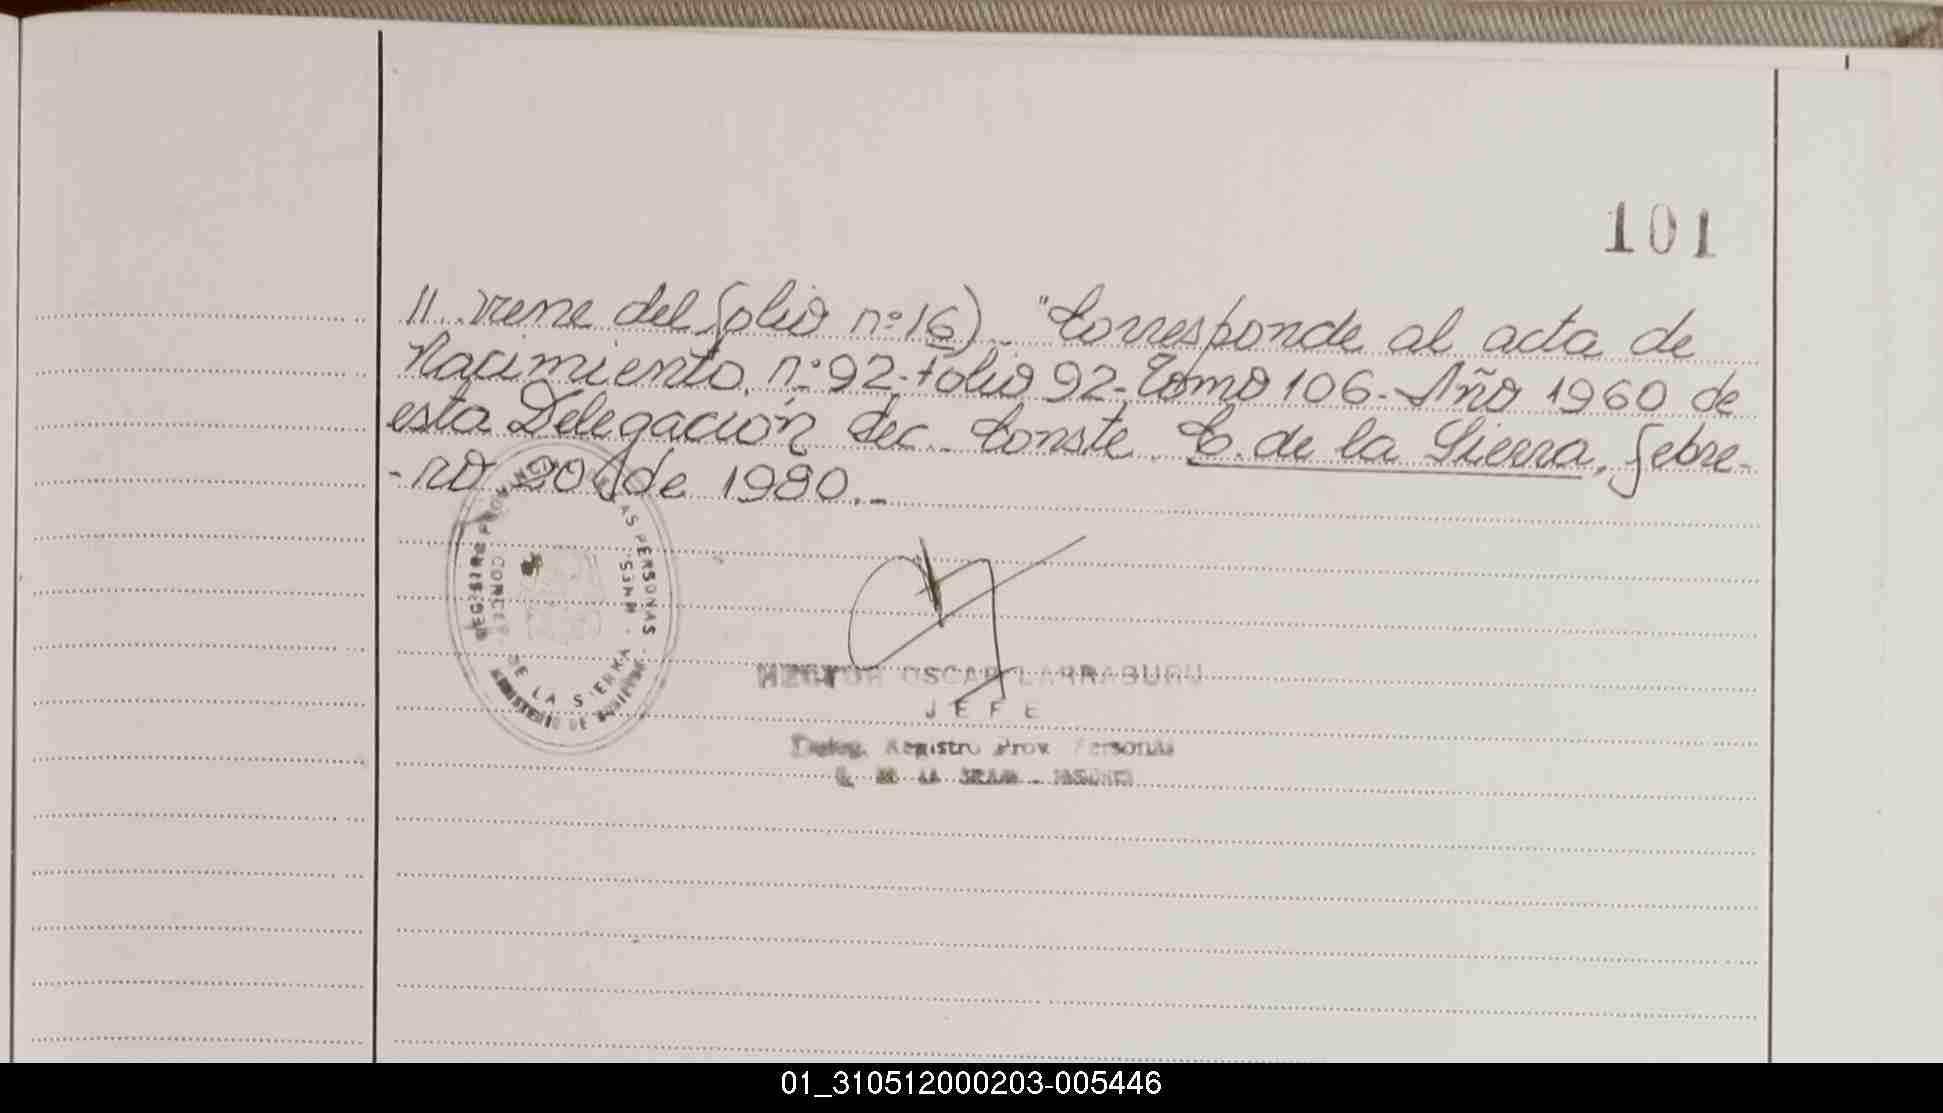 101
11.. viene del folio nº: 16) - "Corresponde al acta de
Nacimiento. nº: 92 - folio 92 - Tomo 106 - Año 1960 de
esta Delegación Sec. - Conste. C. de la Sierra, febre-
-ro 20 de 1980.-
REGISTRO PROV. DE LAS PERSONAS
CONCEP. DE LA SIERRA · MNES.
MINISTERIO DE
HECTOR OSCAR LARRABURU
JEFE
Deleg. Registro Prov. Personas
C. DE LA SIERRA - MISIONES
01_310512000203-005446